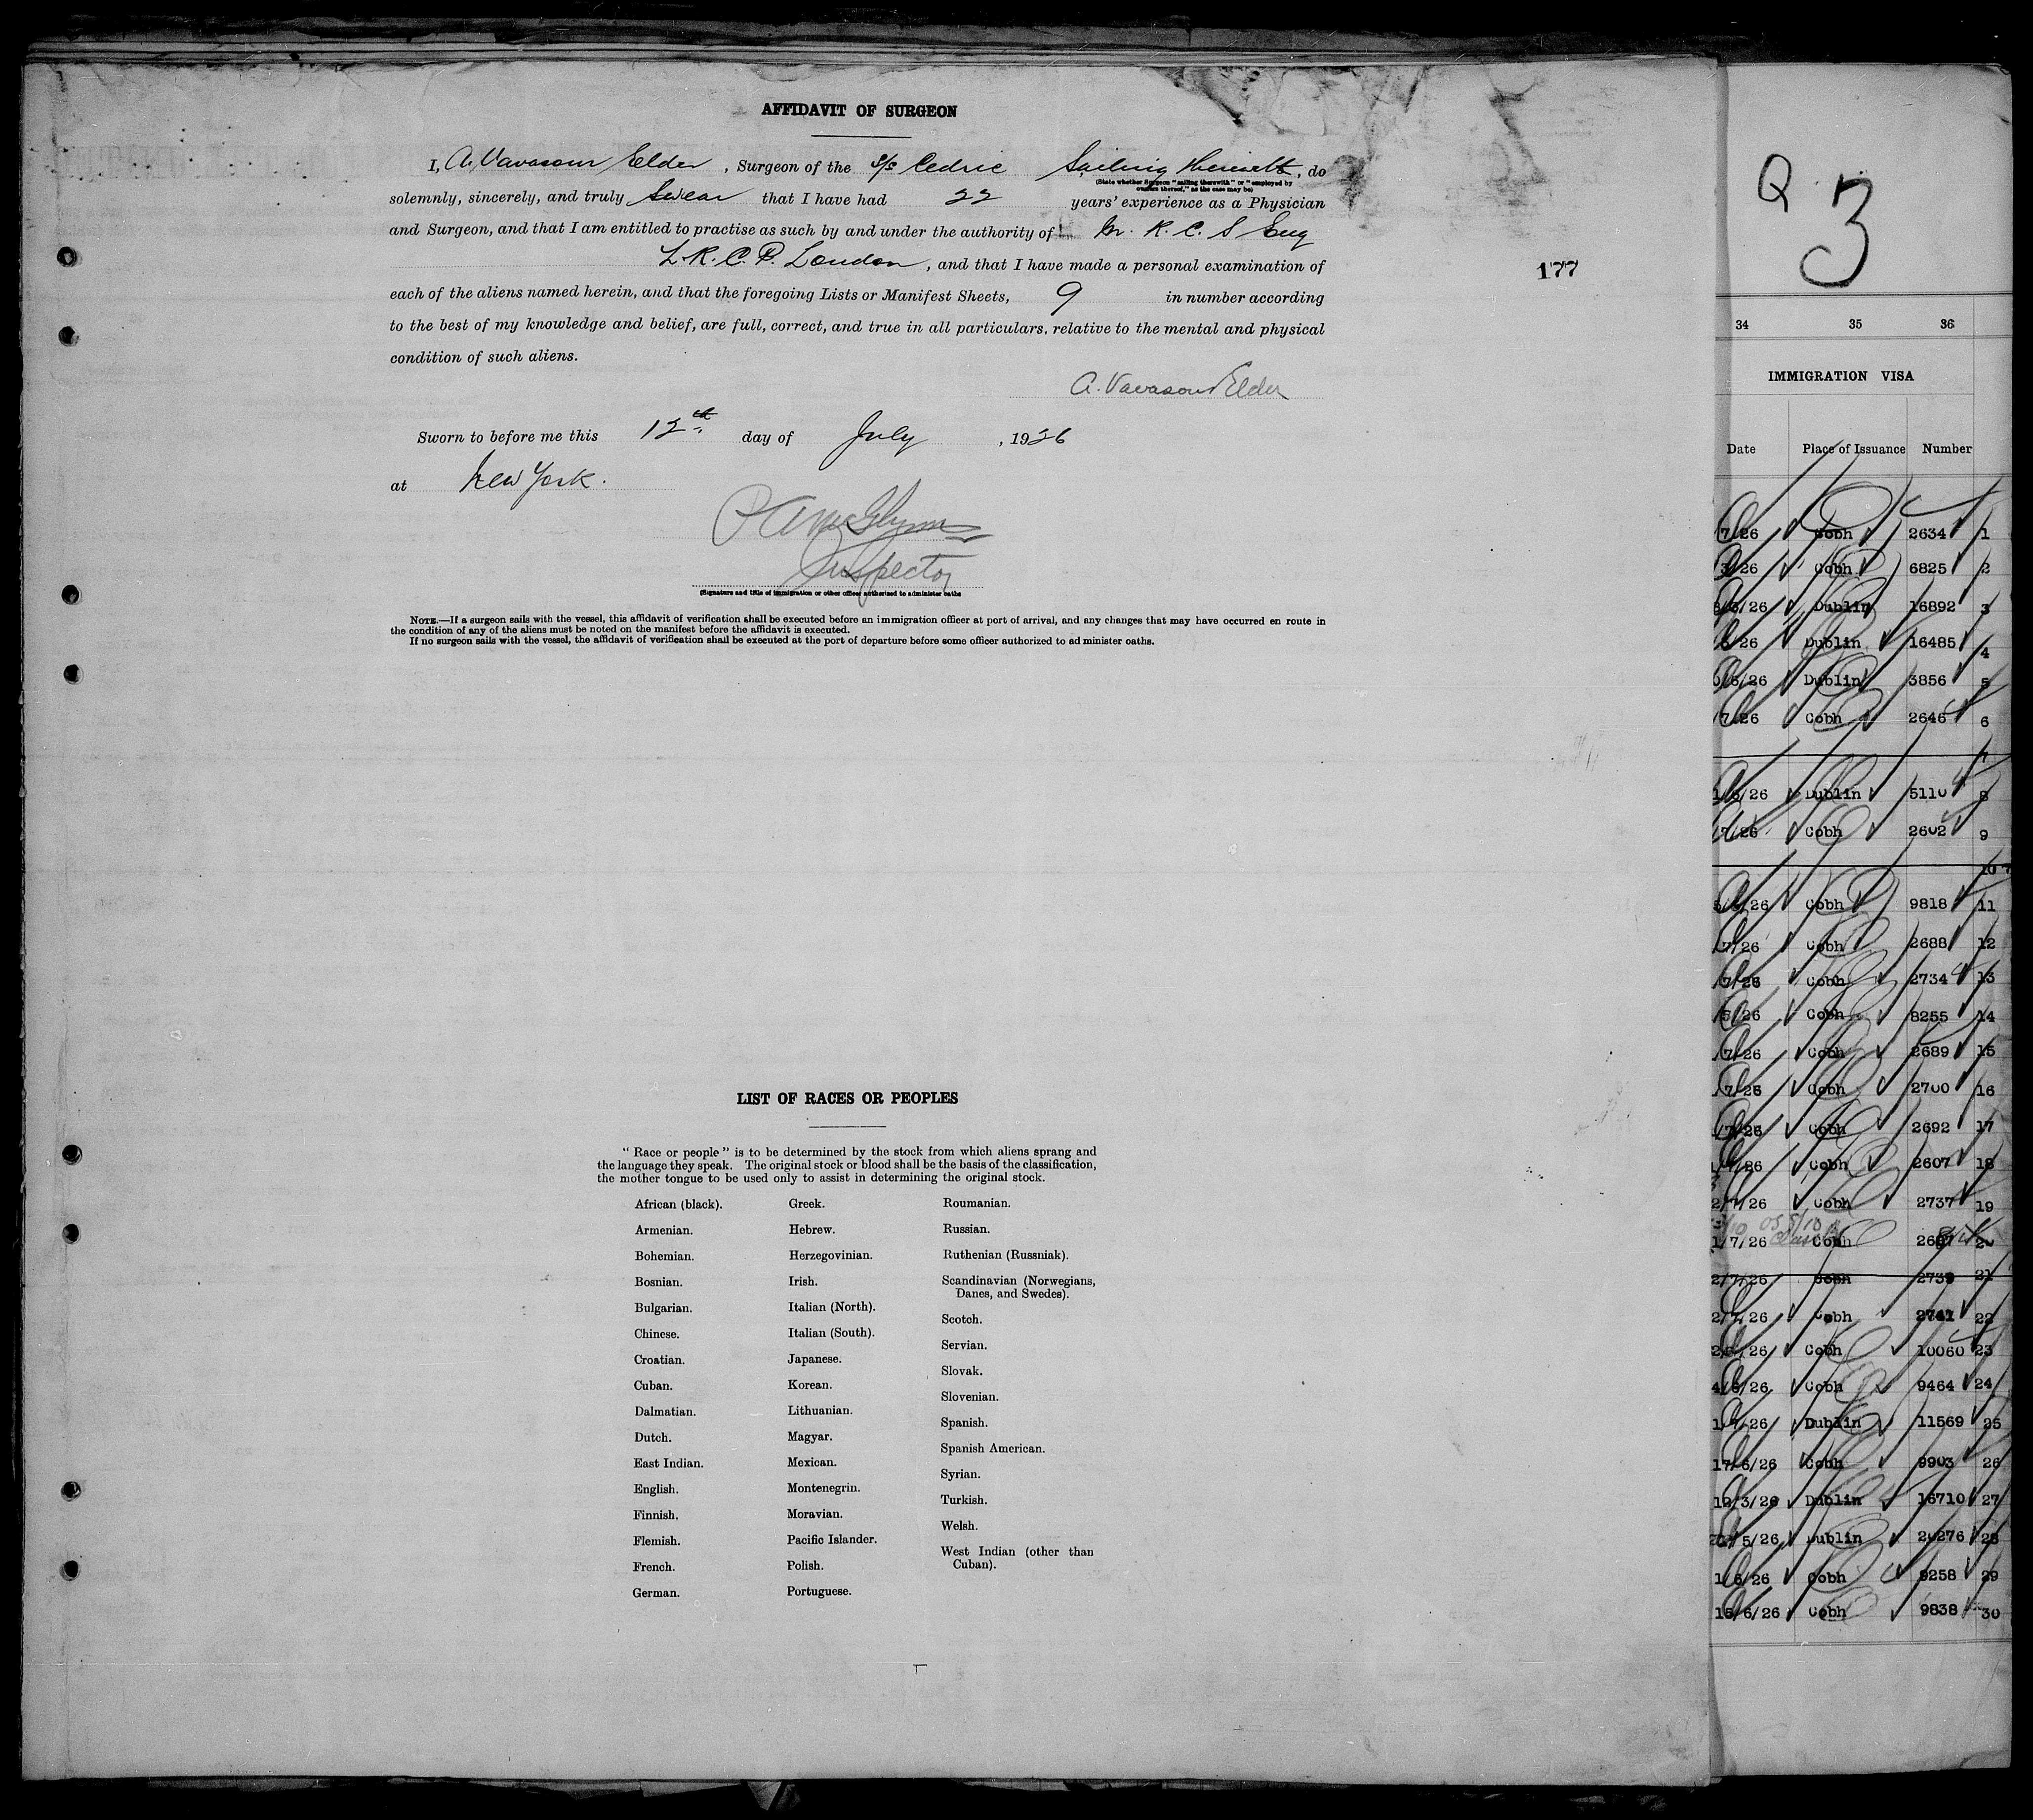 AFFIDAVIT OF SURGEON
I, A. Vavasour Elder, Surgeon of the s/s Cedric Sailing therewith, do
(State whether Surgeon "sailing therewith" or "employed by
owners thereof," as the case may be)
solemnly, sincerely, and truly Swear that I have had 22 years' experience as a Physician
and Surgeon, and that I am entitled to practise as such by and under the authority of M. R. C. S Eng
L.R.C.P. London, and that I have made a personal examination of
each of the aliens named herein, and that the foregoing Lists or Manifest Sheets, 9 in number according
to the best of my knowledge and belief, are full, correct, and true in all particulars, relative to the mental and physical
condition of such aliens.
A. Vavasour Elder
Sworn to before me this 12th day of July, 1926
at New York.
Inspector
(Signature and title of immigration or other officer authorized to administer oaths
NOTE.—If a surgeon sails with the vessel, this affidavit of verification shall be executed before an immigration officer at port of arrival, and any changes that may have occurred en route in
the condition of any of the aliens must be noted on the manifest before the affidavit is executed.
If no surgeon sails with the vessel, the affidavit of verification shall be executed at the port of departure before some officer authorized to administer oaths.
177
LIST OF RACES OR PEOPLES
" Race or people " is to be determined by the stock from which aliens sprang and
the language they speak. The original stock or blood shall be the basis of the classification,
the mother tongue to be used only to assist in determining the original stock.
African (black).
Armenian.
Bohemian.
Bosnian.
Bulgarian.
Chinese.
Croatian.
Cuban.
Dalmatian.
Dutch.
East Indian.
English.
Finnish.
Flemish.
French.
German.
Greek.
Hebrew.
Herzegovinian.
Irish.
Italian (North).
Italian (South).
Japanese.
Korean.
Lithuanian.
Magyar.
Mexican.
Montenegrin.
Moravian.
Pacific Islander.
Polish.
Portuguese.
Roumanian.
Russian.
Ruthenian (Russniak).
Scandinavian (Norwegians,
Danes, and Swedes).
Scotch.
Servian.
Slovak.
Slovenian.
Spanish.
Spanish American.
Syrian.
Turkish.
Welsh.
West Indian (other than
Cuban).
Q 3
34 35 36
IMMIGRATION VISA
Date Place of Issuance Number
7/26 Cobh 2634 1
/26 Cobh 6825 2
/26 Dublin 16892 3
/26 Dublin 16485 4
/26 Dublin 3856 5
/7/26 Cobh 2646 6
7
/26 Dublin 5110 8
/7/26 Cobh 2602 9
10
/26 Cobh 9818 11
7/26 Cobh 2688 12
/7/26 Cobh 2734 13
/26 Cobh 8255 14
/7/26 Cobh 2689 15
/7/26 Cobh 2700 16
/7/26 Cobh 2692 17
/7/26 Cobh 2607 18
2/7/26 Cobh 2737 19
1/7/26 Cobh 20
2/7/26 Cobh 2739 21
2/7/26 Cobh 2741 22
/26 Cobh 10060 23
4/6/26 Cobh 9464 24
1/7/26 Dublin 11569 25
17/6/26 Cobh 9903 26
12/3/26 Dublin 16710 27
/5/26 Dublin 20276 28
1/6/26 Cobh 9258 29
15/6/26 Cobh 9838 30